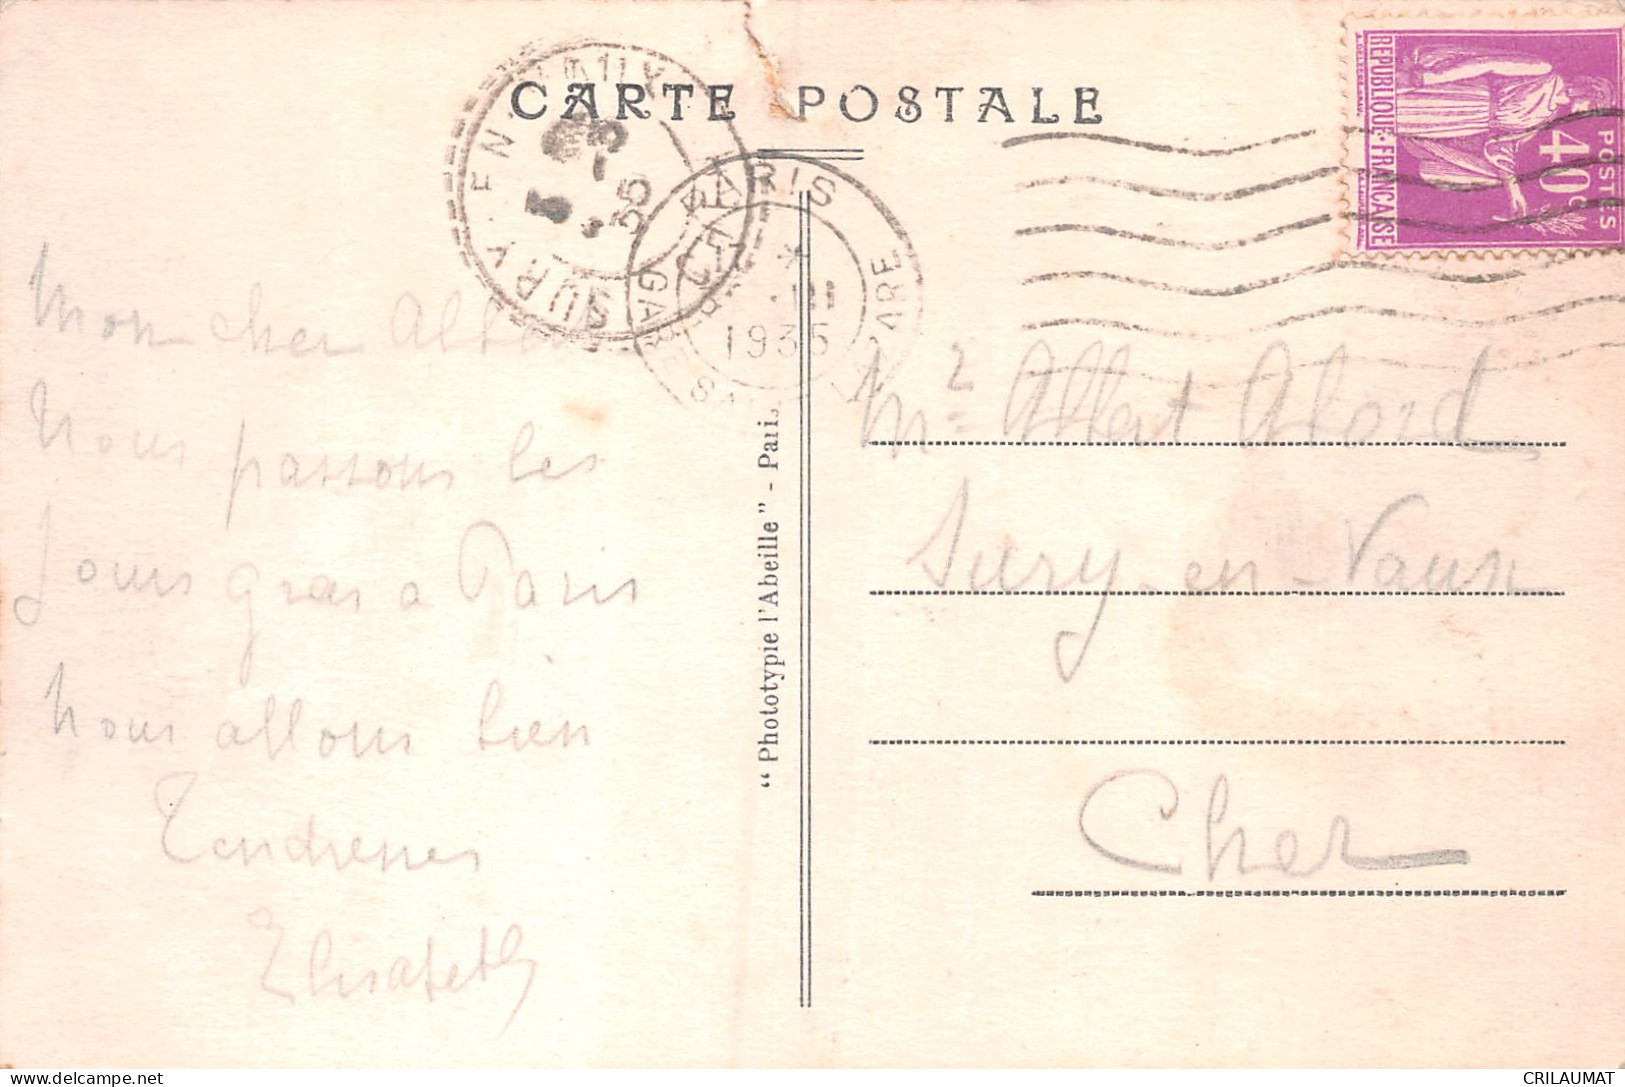 CARTE POSTALE
REPUBLIQUE·FRANÇAISE
POSTES
40c
SURY EN VAUX
CHER
5 -3
35
PARIS
GARE ST LAZARE
* III
1935
Mon cher Albert
Nous passons les
Jours gras a Paris
Nous allons bien
Tendresses
Elisabeth
"Phototypie l'Abeille" - Paris
Mr Albert
Sury-en-Vaux
Cher
CRILAUMAT